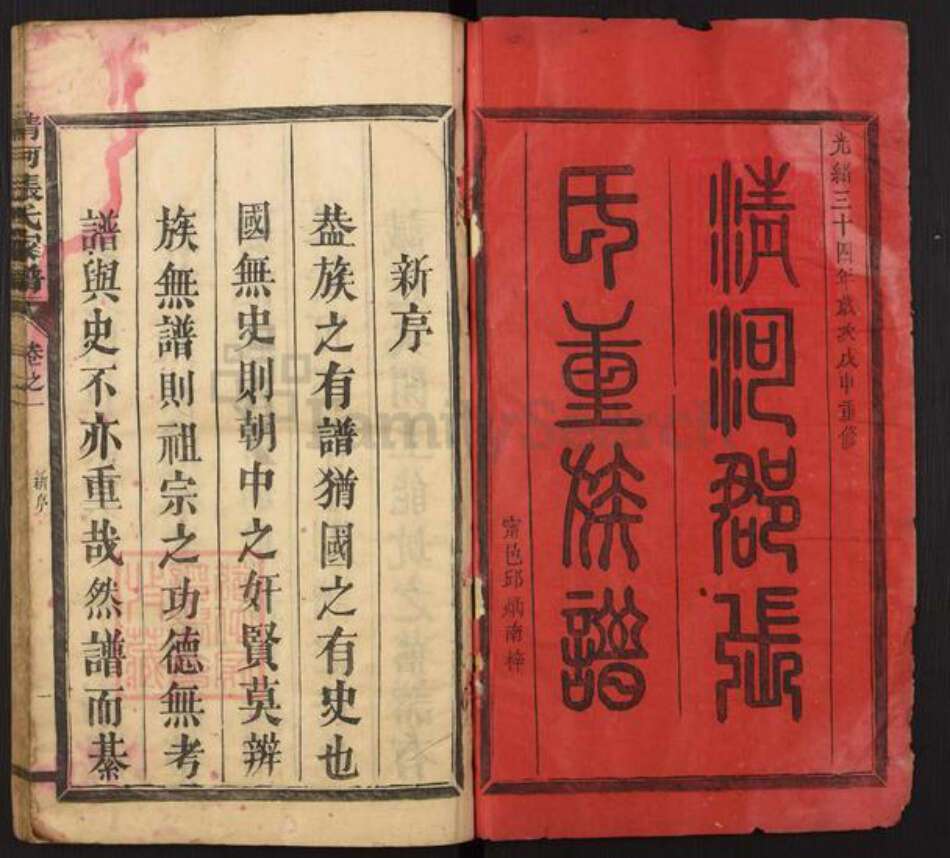 光緒三十四年歲次戊申重修
清河郡張
氏重族譜
甯邑邱炳南梓
新序
葢族之有譜猶國之有史也
國無史則朝中之奸賢莫辨
族無譜則祖宗之功德無考
譜與史不亦重哉然譜而綦
清河張氏家譜
卷之一
新序
一